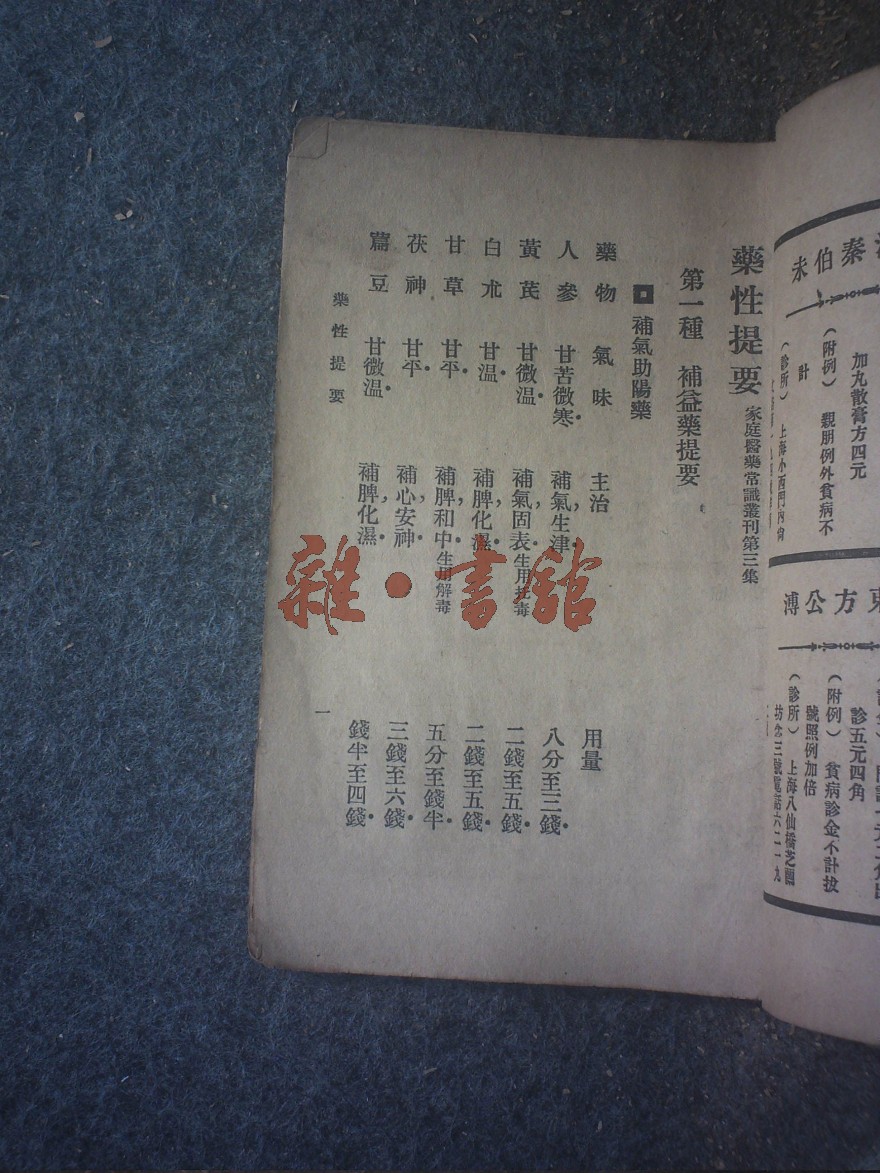 秦伯未
加丸散膏方四元
（附例） 親朋例外貧病不
計
（診所） 上海小西門內尚
東方公溥
診五元四角
（附例） 貧病診金不計拔
號照例加倍
（診所） 上海八仙橋芝蘭
坊念三號電話六二一九
藥性提要 家庭醫藥常識叢刊第三集
第一種 補益藥提要
補氣助陽藥
藥物 氣味 主治 用量
人參 甘苦微寒· 補氣，生津· 八分至三錢·
黃芪 甘微溫· 補氣，固表·生用托毒 二錢至五錢·
白朮 甘溫· 補脾，化濕· 二錢至五錢·
甘草 甘平· 補脾，和中·生用解毒 五分至錢半·
茯神 甘平· 補心，安神· 三錢至六錢·
萹豆 甘微溫· 補脾，化濕· 錢半至四錢·
藥性提要
一
雜·書館